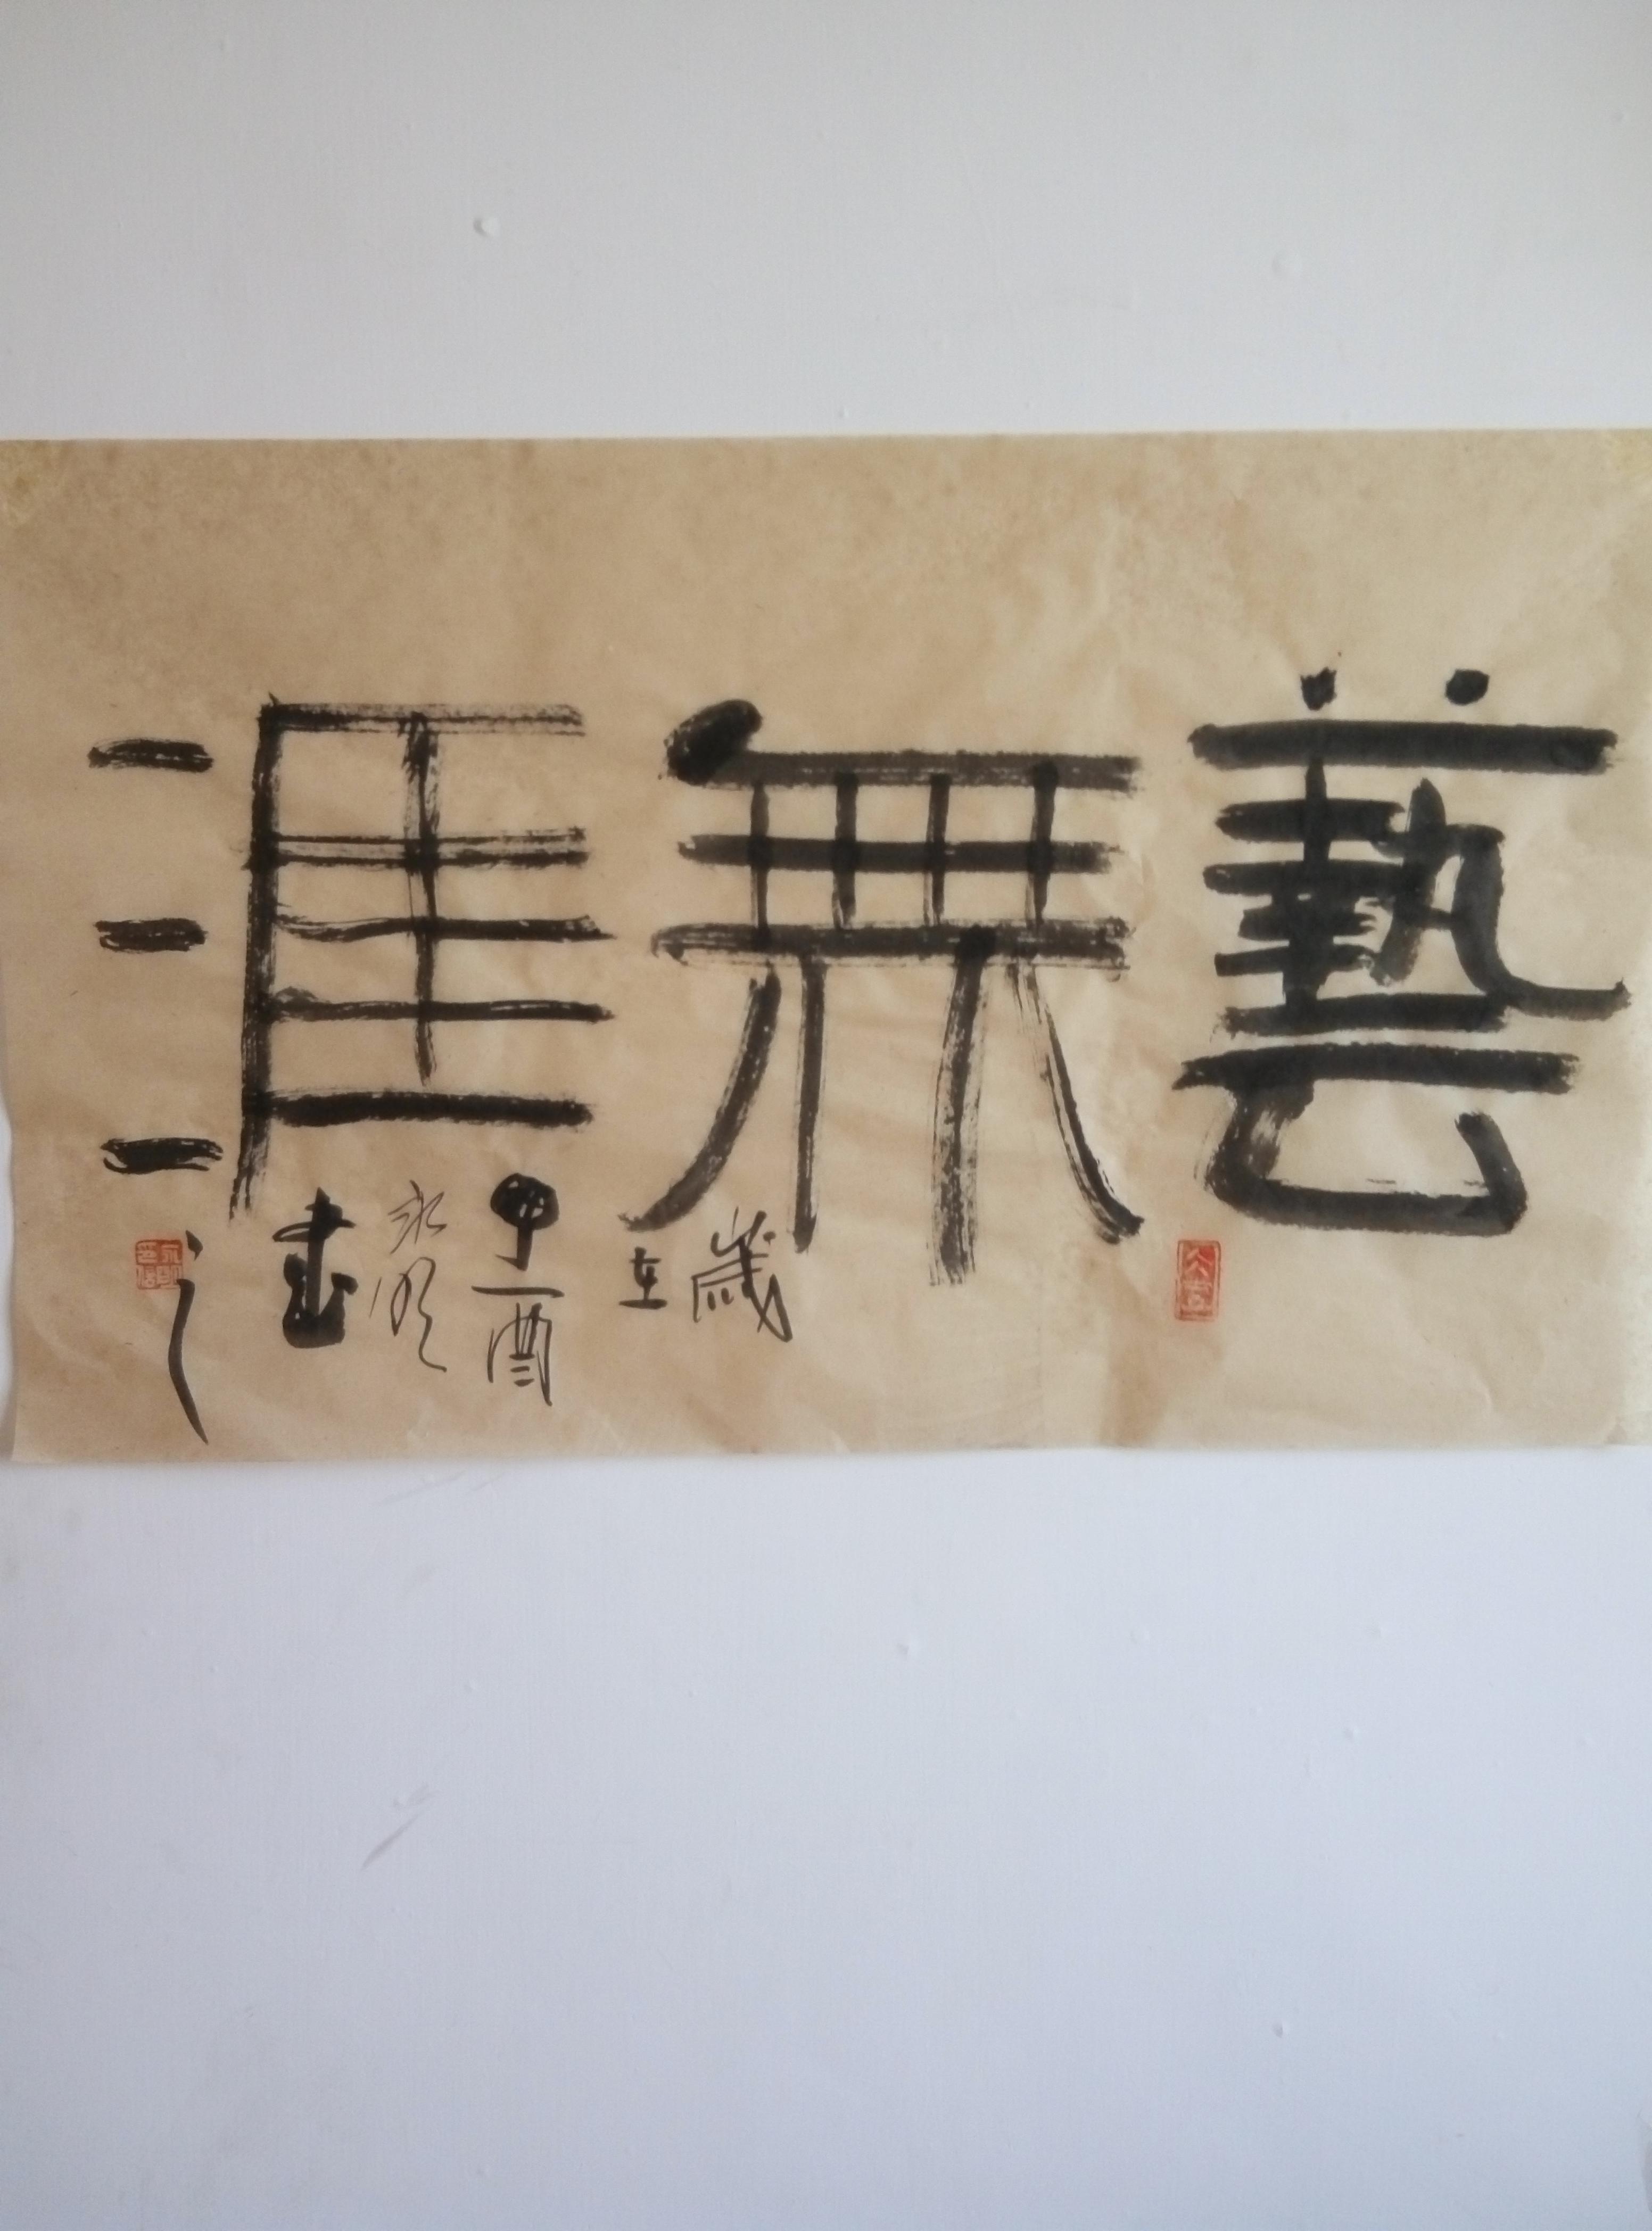 藝無涯
歲在
丁酉
永明
書